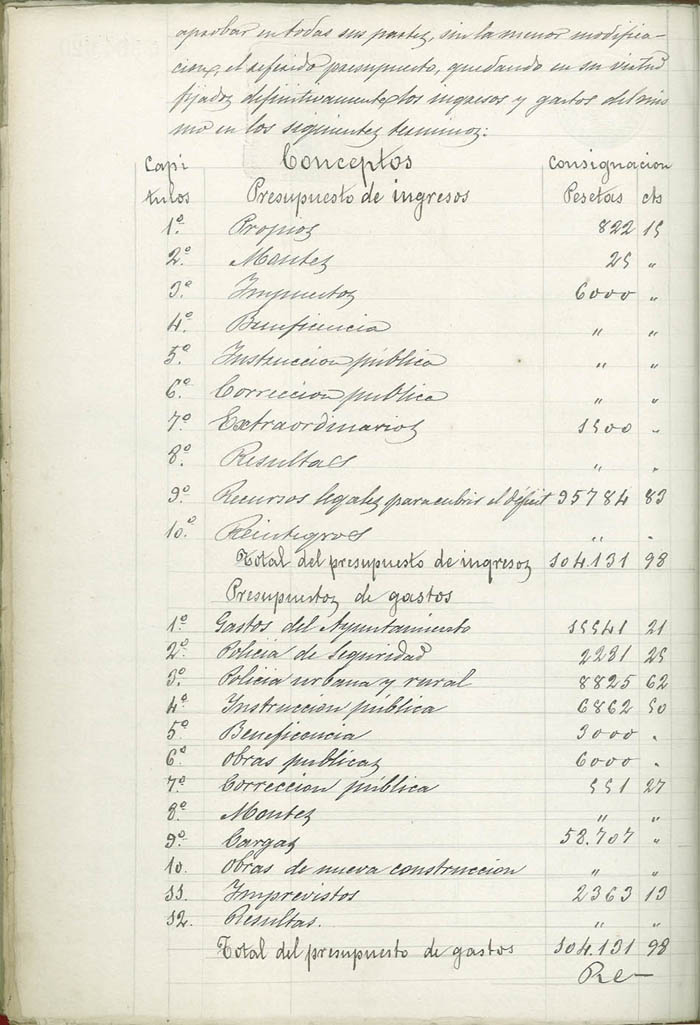 aprobar en todas sus partes, sin la menor modifica-
cion, el referido presupuesto, quedando en su virtud
fijados definitivamente los ingresos y gastos del mis
mo en los siguientes terminos:
Capi Conceptos Consignacion
tulos Presupuesto de ingresos Pesetas cts
1º Propios 822 15
2º Montes 25 "
3º Impuestos 6000 "
4º Beneficencia " "
5º Instruccion pública " "
6º Correccion publica " "
7º Extraordinarios 1500 "
8º Resultas " "
9º Recursos legales para cubrir el déficit 95784 83
10º Reintegros " "
Total del presupuesto de ingresos 104.131 98
Presupuestos de gastos
1º Gastos del Ayuntamiento 15541 21
2º Policia de Seguridad 2281 25
3º Policia urbana y rural 8825 62
4º Instruccion pública 6862 50
5º Beneficencia 3000 "
6º Obras publicas 6000 "
7º Correccion pública 551 27
8º Montes " "
9º Cargas 58.707 "
10. Obras de nueva construccion " "
11. Imprevistos 2363 13
12. Resultas. " "
Total del presupuesto de gastos 104.131 98
Re-